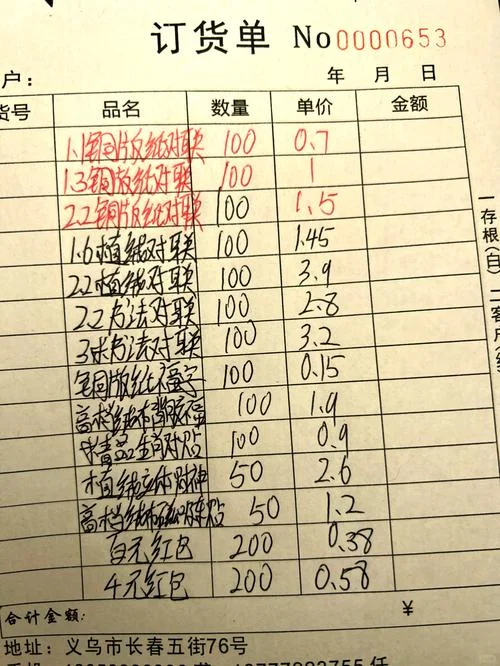 订货单 No 0000653
户： 年 月 日
货号 品名 数量 单价 金额
1.1铜版纸对联 100 0.7
1.3铜版纸对联 100 1
2.2铜版纸对联 100 1.5
1.6植绒对联 100 1.45
2.2植绒对联 100 3.9
2.2书法对联 100 2.8
3米书法对联 100 3.2
铜版纸福字 100 0.15
高档绒布背胶福 100 1.9
精品生肖对贴 100 0.9
植绒立体财神 50 2.6
高档绒布 贴 50 1.2
百元红包 200 0.38
4元红包 200 0.58
合计金额： ￥
地址：义乌市长春五街76号
一存根(白) 二客户(红)